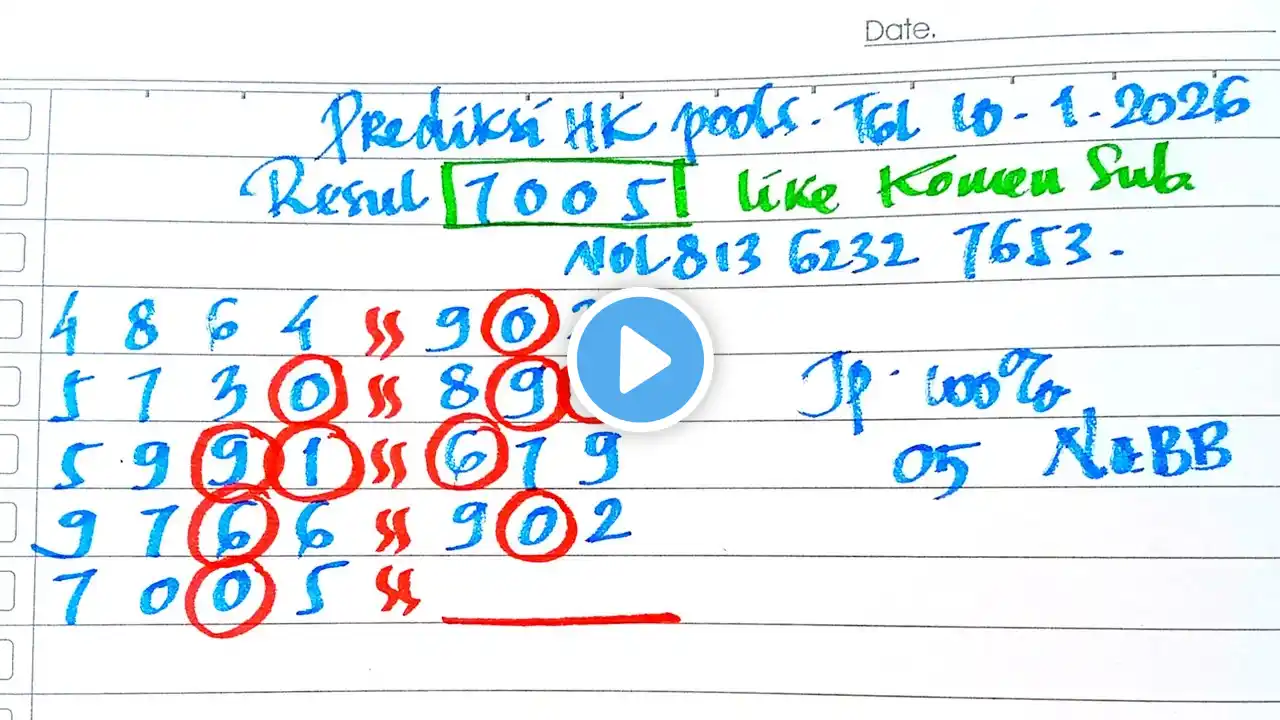 Date.
Prediksi HK pools. Tgl 10-1-2026
Resul 7005 like Komen Sub.
NOL 813 6232 7653.
4 8 6 4 SS 9 0
5 7 3 0 SS 8 9
Jp. 100%
5 9 9 1 SS 6 7 9
05 NEBB
9 7 6 6 SS 9 0 2
7 0 0 5 SS